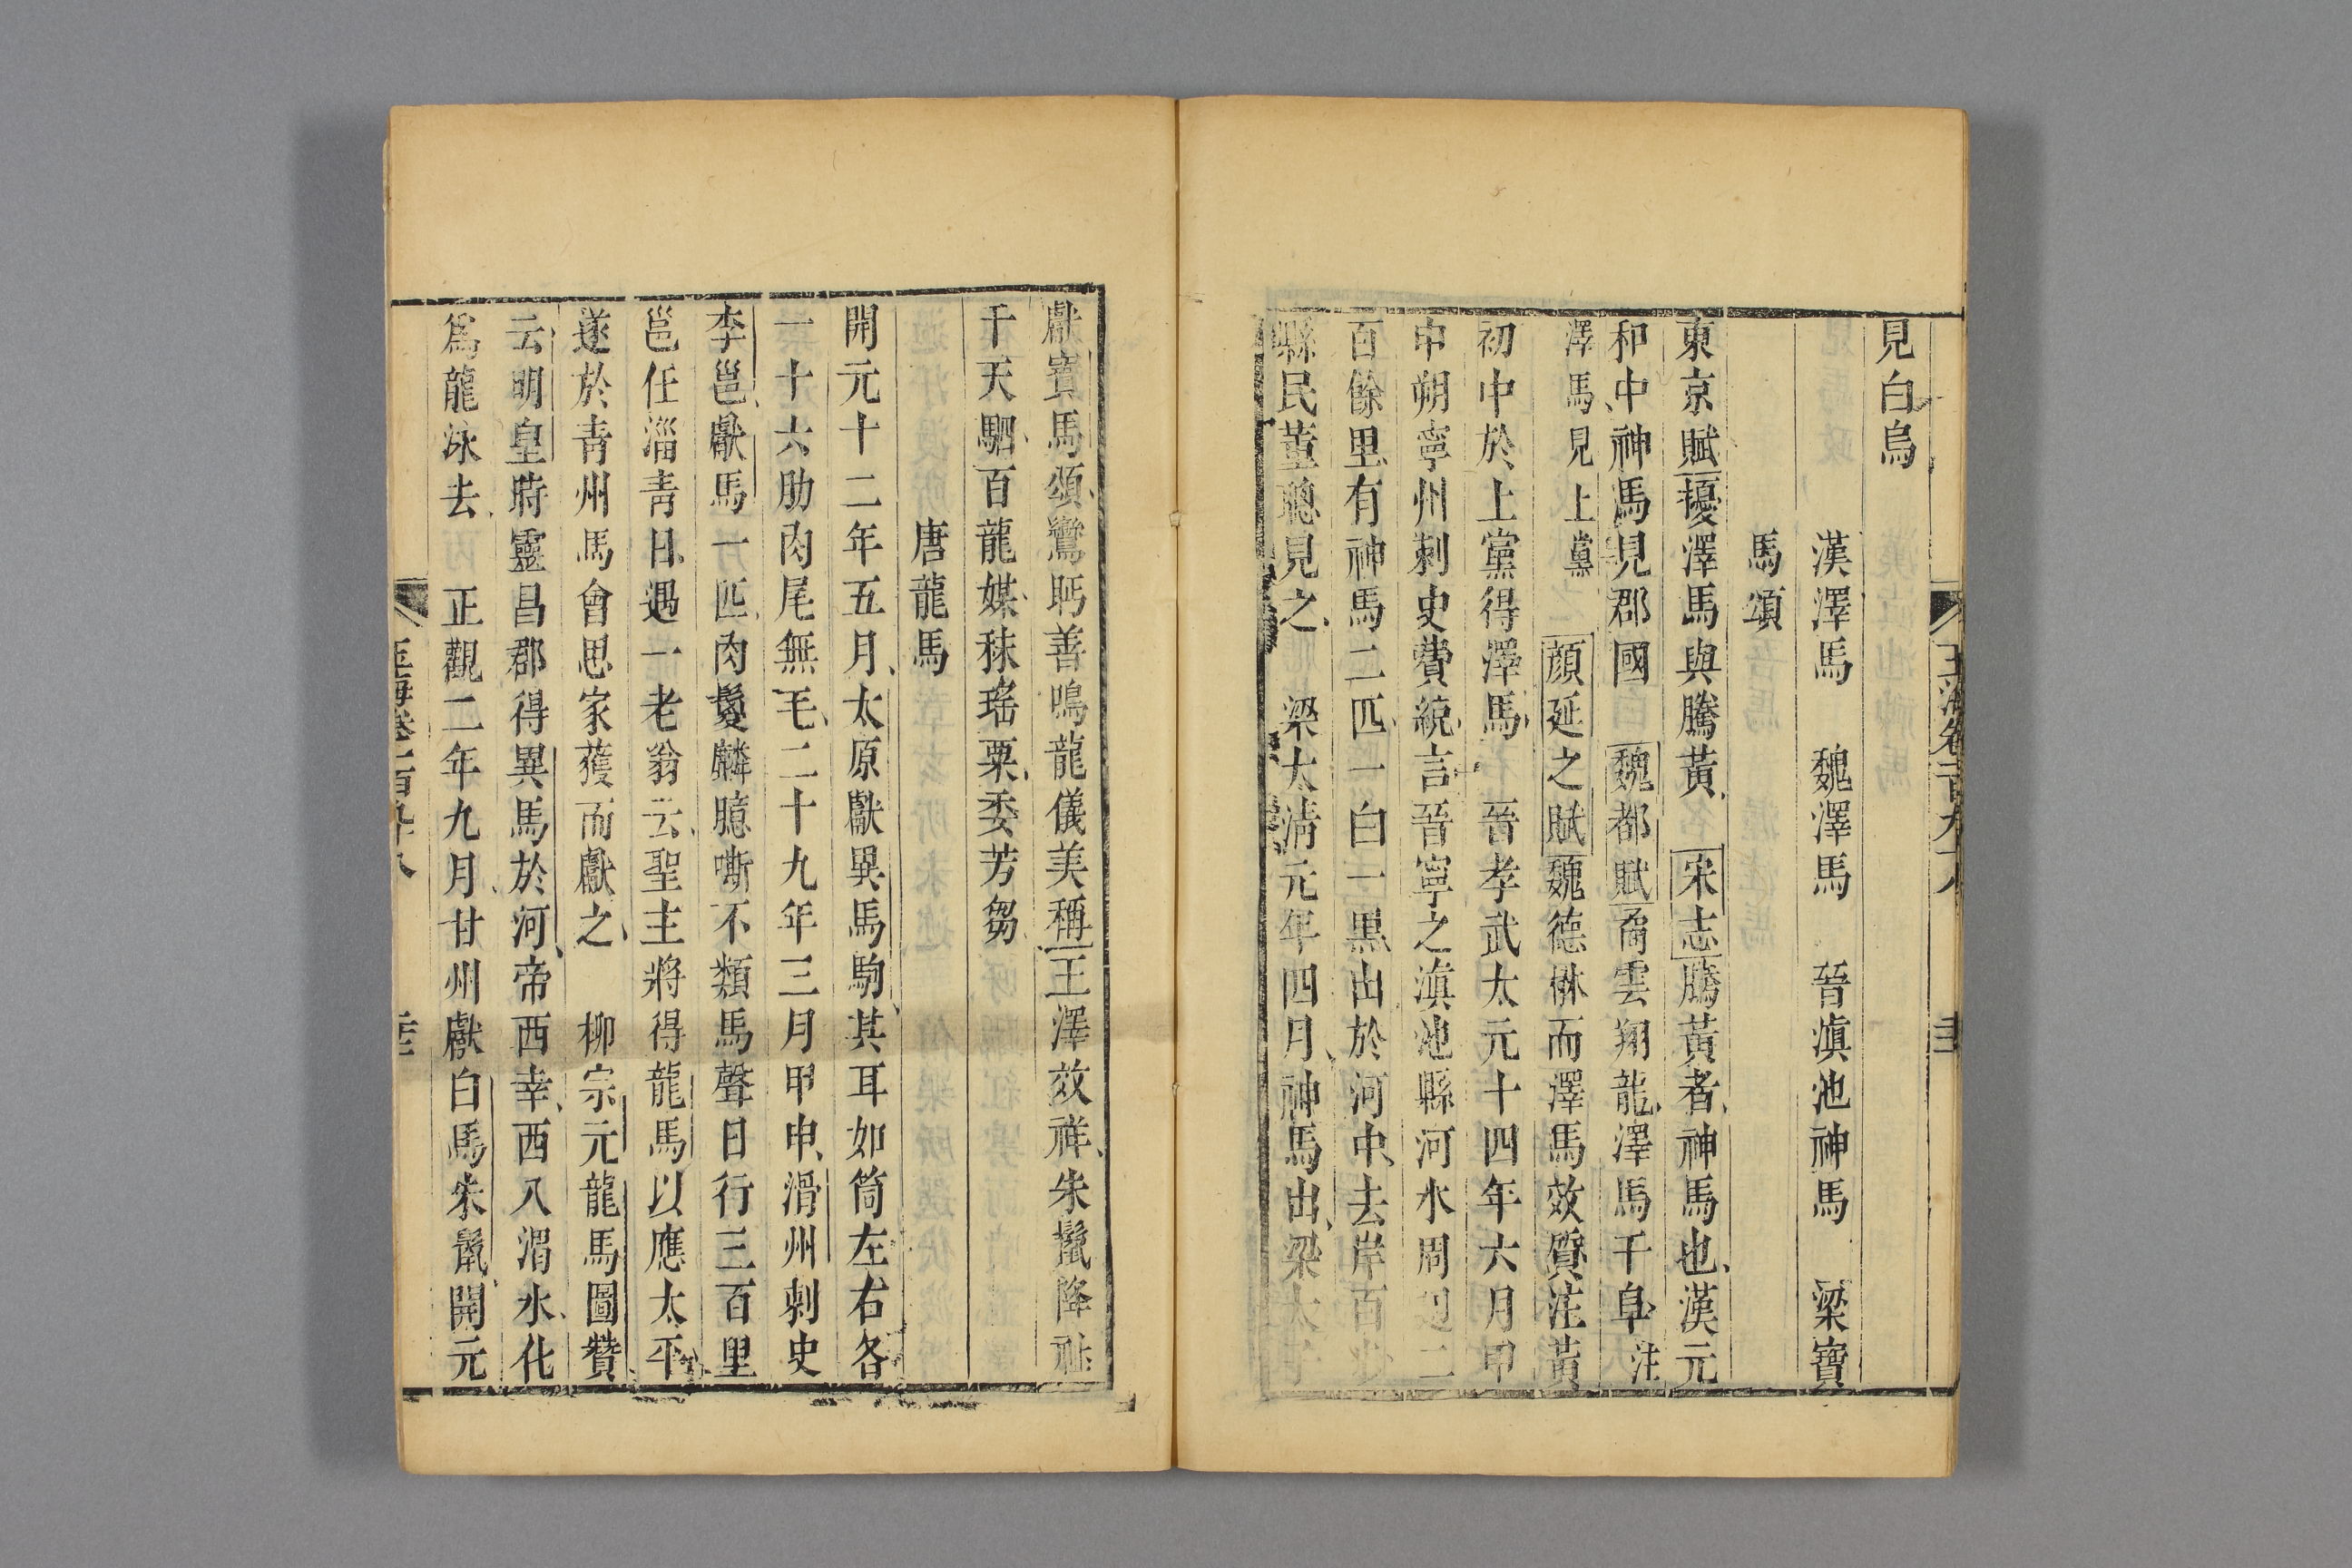 見白烏
漢澤馬　魏澤馬　晉滇池神馬　梁寶
馬頌
東京賦擾澤馬與騰黃　宋志騰黃者神馬也漢元
和中神馬見郡國　魏都賦矞雲翔龍澤馬千阜注
澤馬見上黨　顏延之賦魏德楙而澤馬效質注黃
初中於上黨得澤馬　晉孝武太元十四年六月甲
申朔寧州刺史費統言晉寧之滇池縣河水周二
百餘里有神馬二匹一白一黑出於河中去岸百步
縣民董聰見之　梁太清元年四月神馬出梁太子
獻寶馬頌鸞眄善鳴龍儀美稱王澤效祥朱鬣降祉
千天駟百龍媒秣瑤粟委芳芻
唐龍馬
開元十二年五月太原獻異馬駒其耳如筒左右各
一十六肋肉尾無毛二十九年三月甲申滑州刺史
李邕獻馬一匹肉鬉麟臆嘶不類馬聲日行三百里
邕任淄青日遇一老翁云聖主將得龍馬以應太平
遂於青州馬會思家獲而獻之　柳宗元龍馬圖贊
云明皇時靈昌郡得異馬於河帝西幸西入渭水化
爲龍泳去　正觀二年九月甘州獻白馬朱鬣開元
玉海卷一百九十八